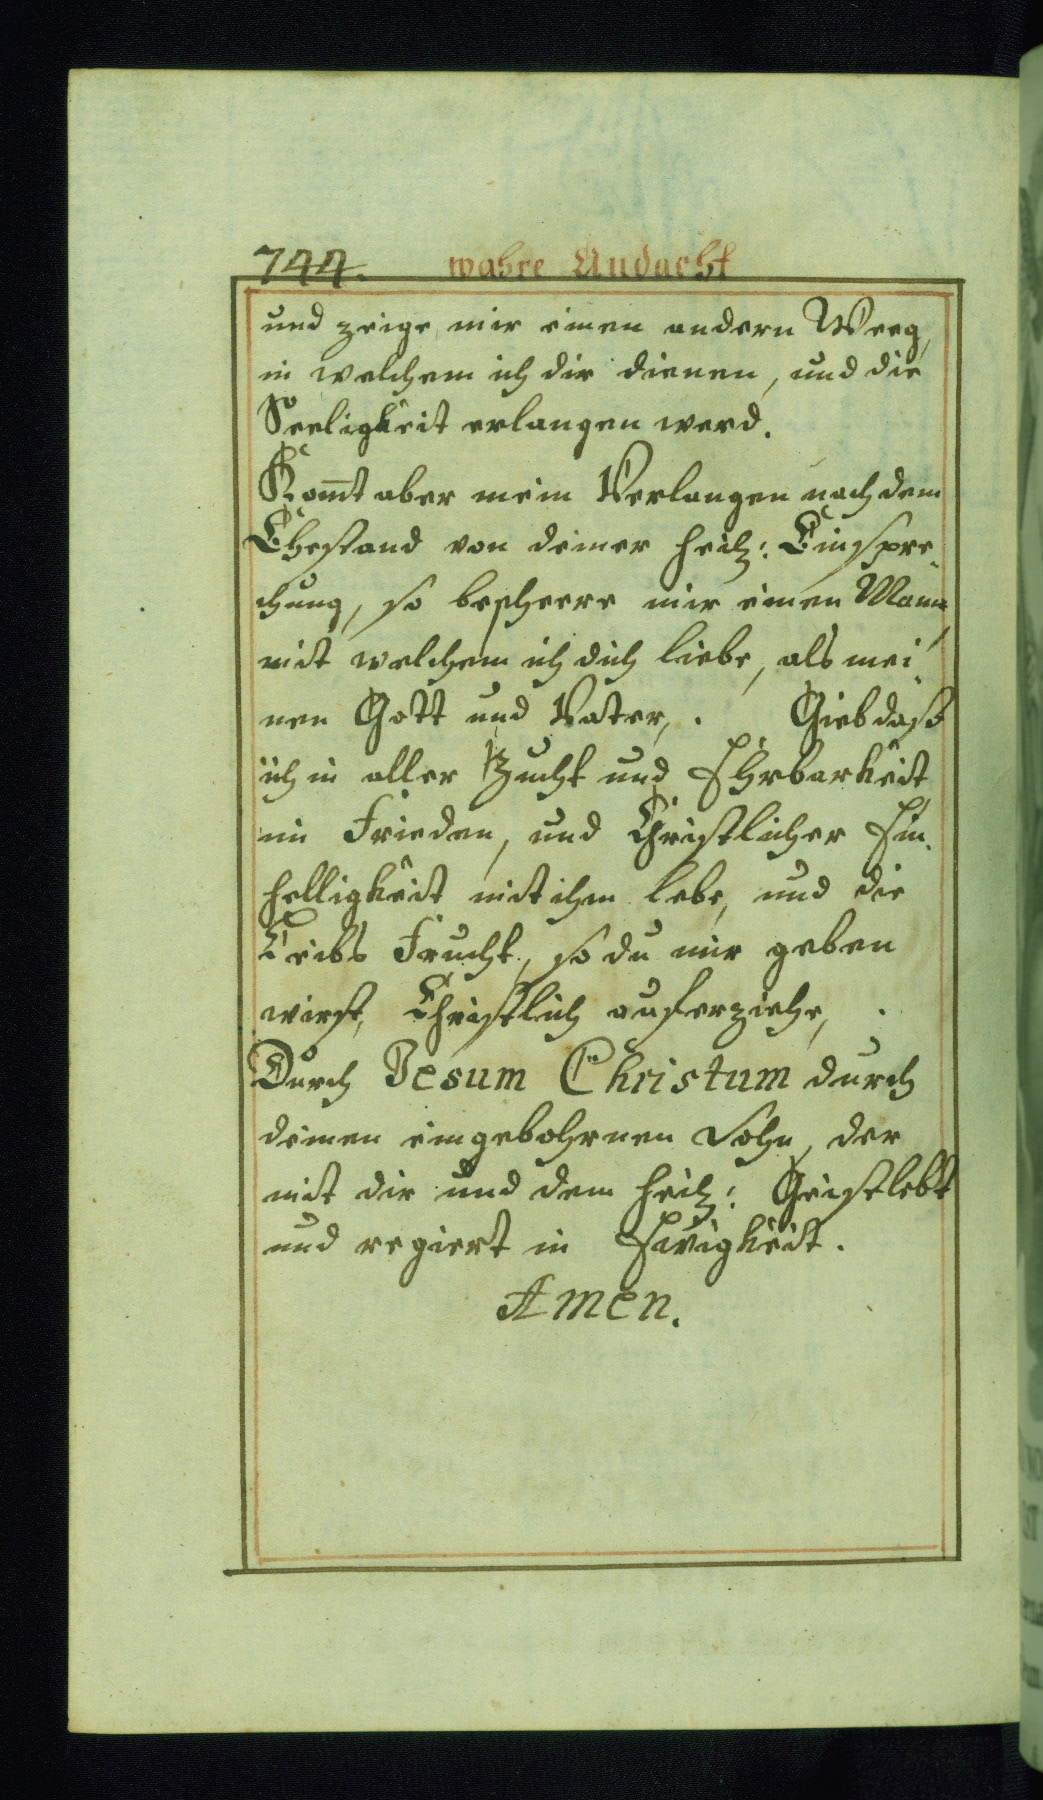 744. wahre Andacht
und zeige mir einen andern Weeg,
in welchem ich dir dienen, und die
Seeligkeit erlangen werd.
Kom̅t aber mein Verlangen nach dem
Ehestand von deiner heilg: Einspre„
chung, so bescheere mir einen Mann,
mit welchem ich dich liebe, als mei„
nen Gott und Vater, . Gieb daß
ich in aller Zucht und Ehrbarkeit
im Frieden, und Christlicher Ein„
helligkeit mit ihm lebe, und die
Leibs Frucht, so du mir geben
wirst, Christlich auferziehe, .
Durch Jesum Christum durch
deinen eingebohrnen Sohn, der
mit dir und dem heilg: Geist lebt
und regiert in Ewigkeit.
Amen.